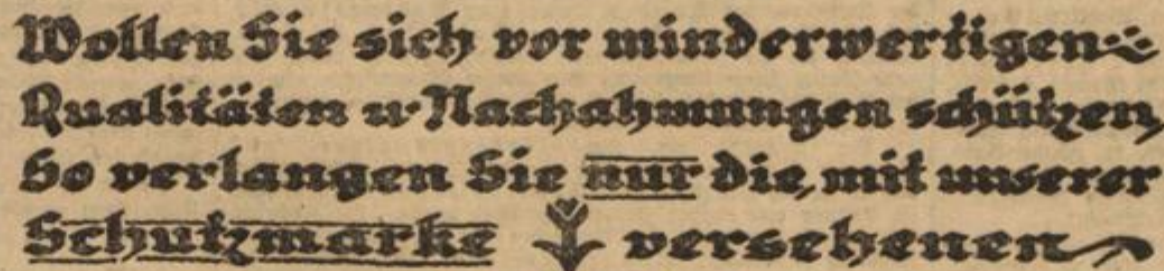 Wollen Sie sich vor minderwertigen
Qualitäten u. Nachahmungen schützen,
So verlangen Sie nur die, mit unserer
Schutzmarke versehenen